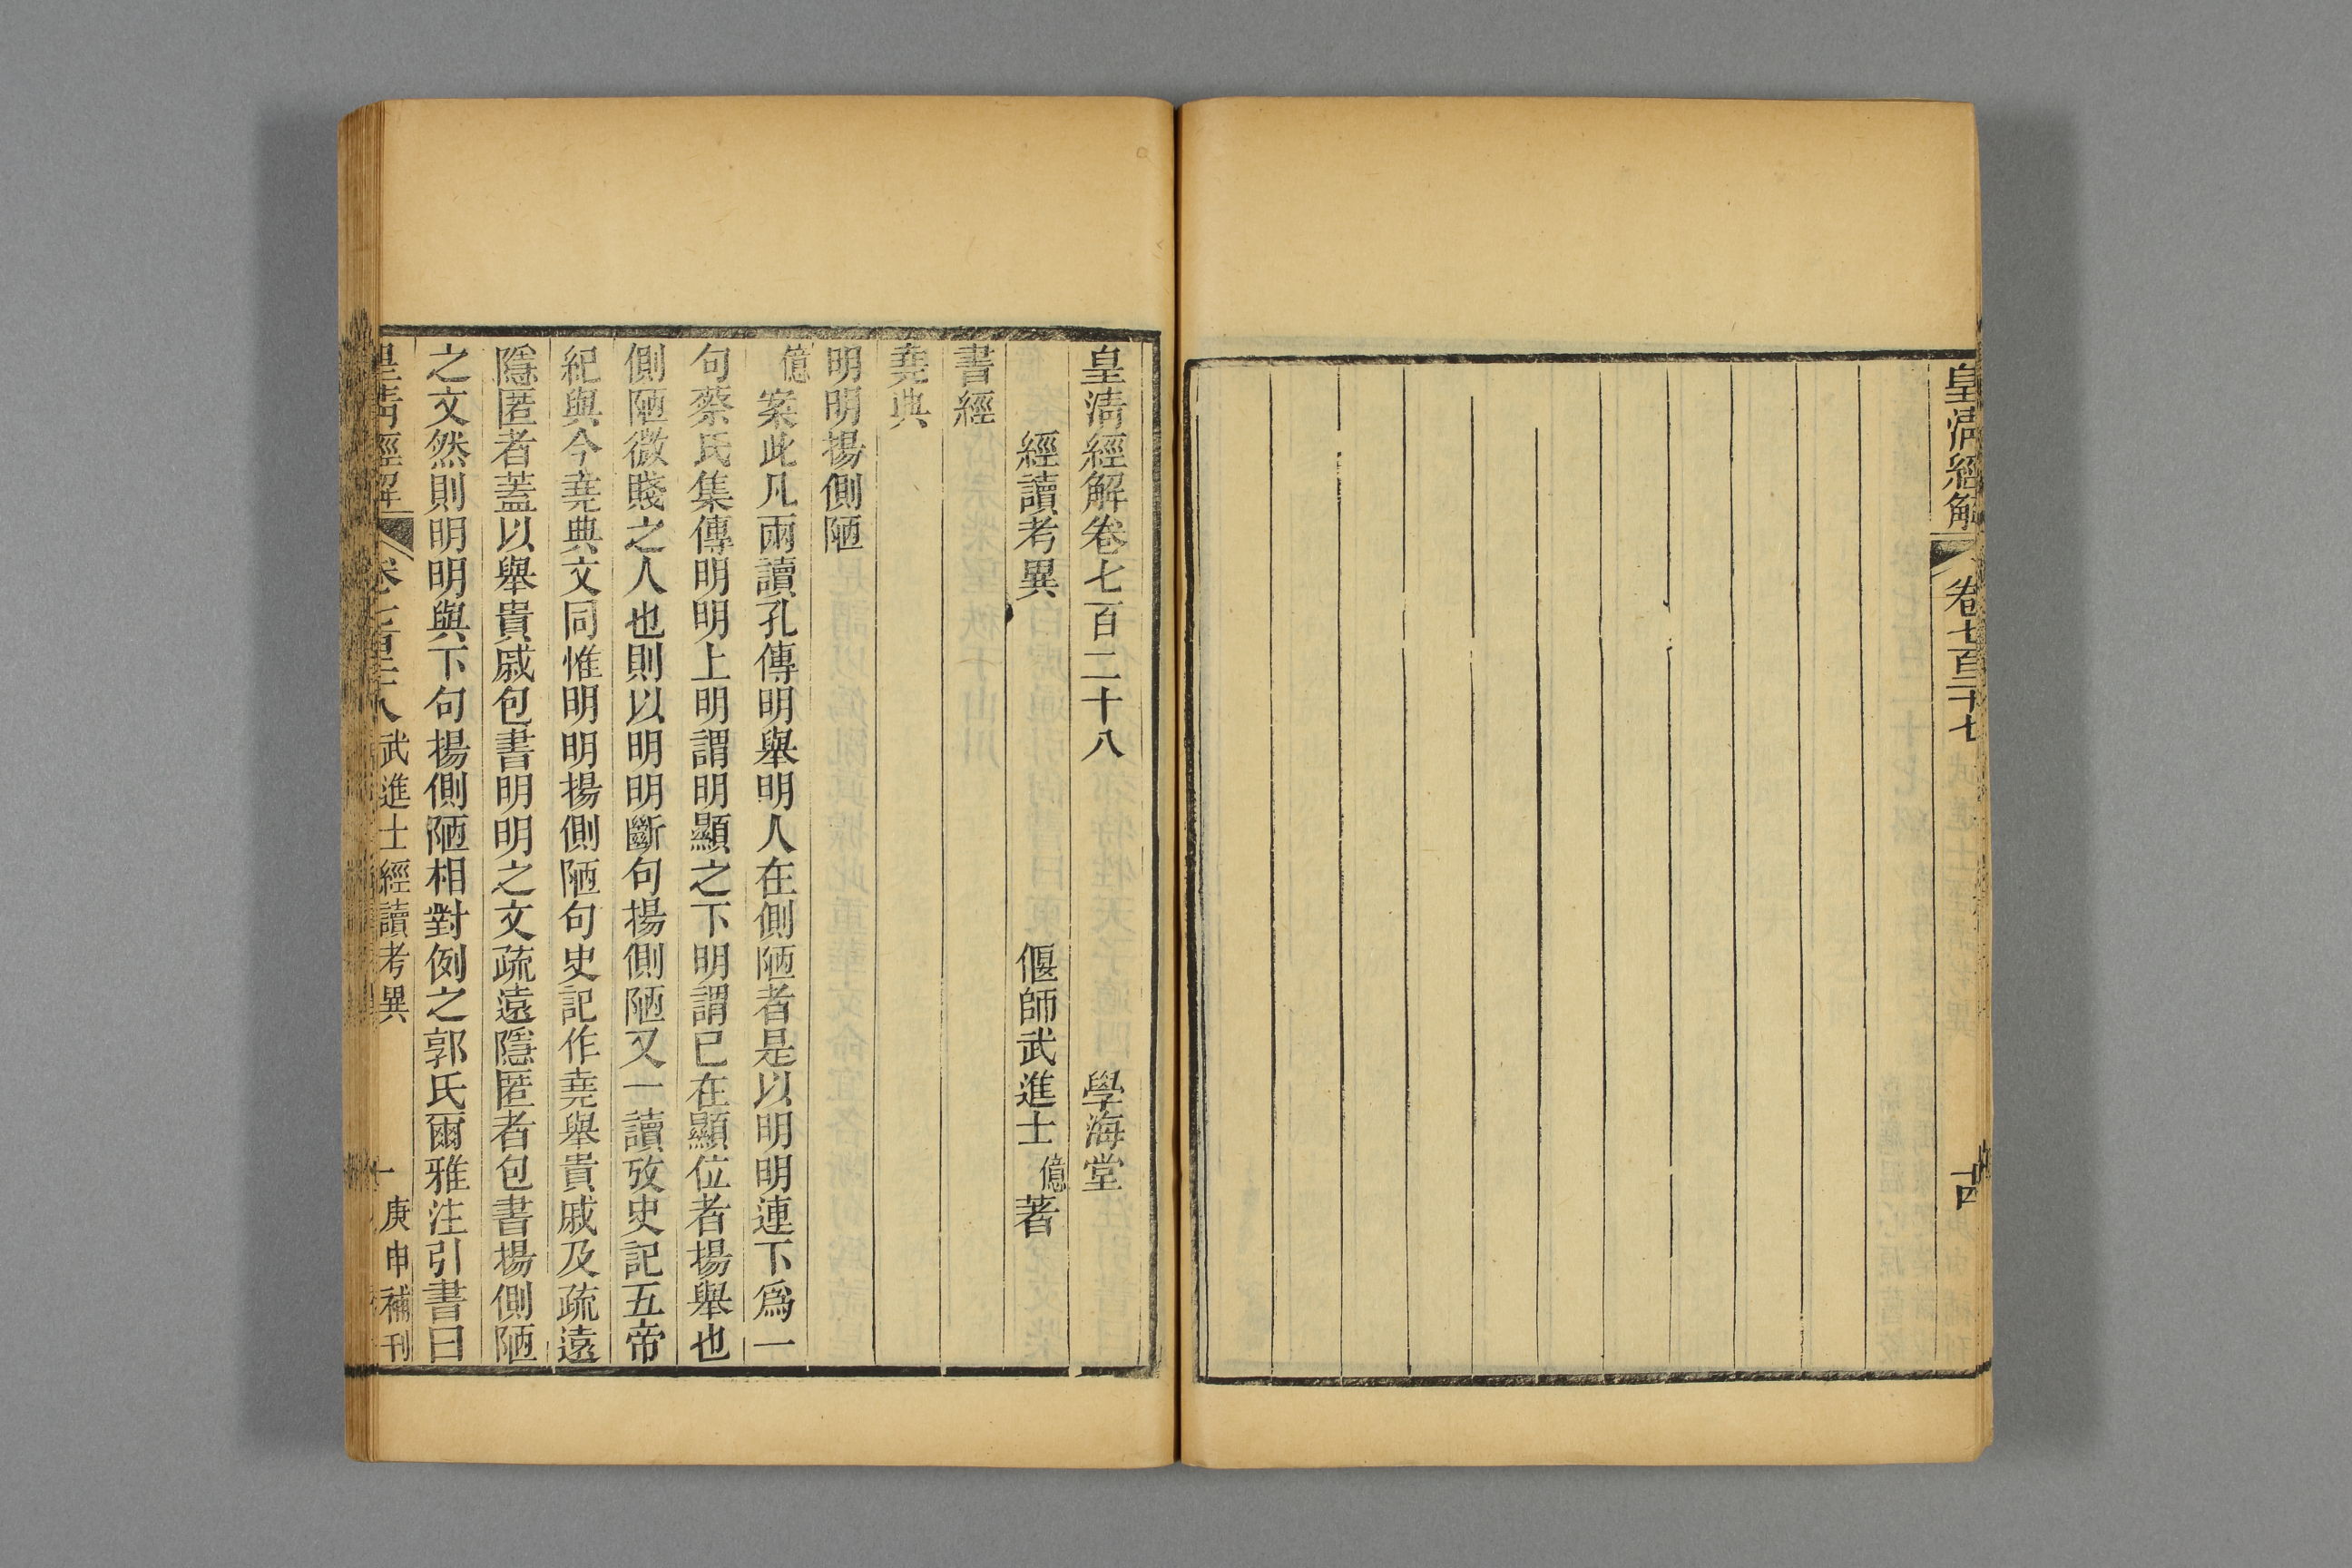 皇清經解
卷七百二十七
古
皇清經解卷七百二十八
學海堂
經讀考異
偃師武進士億著
書經
堯典
明明揚側陋
億案此凡兩讀孔傳明舉明人在側陋者是以明明連下爲一
句蔡氏集傳明明上明謂明顯之下明謂已在顯位者揚舉也
側陋微賤之人也則以明明斷句揚側陋又一讀攷史記五帝
紀與今堯典文同惟明明揚側陋句史記作堯舉貴戚及疏遠
隱匿者蓋以舉貴戚包書明明之文疏遠隱匿者包書揚側陋
之文然則明明與下句揚側陋相對例之郭氏爾雅注引書曰
皇清經解
卷七百二十八
武進士經讀考異
一
庚申補刊